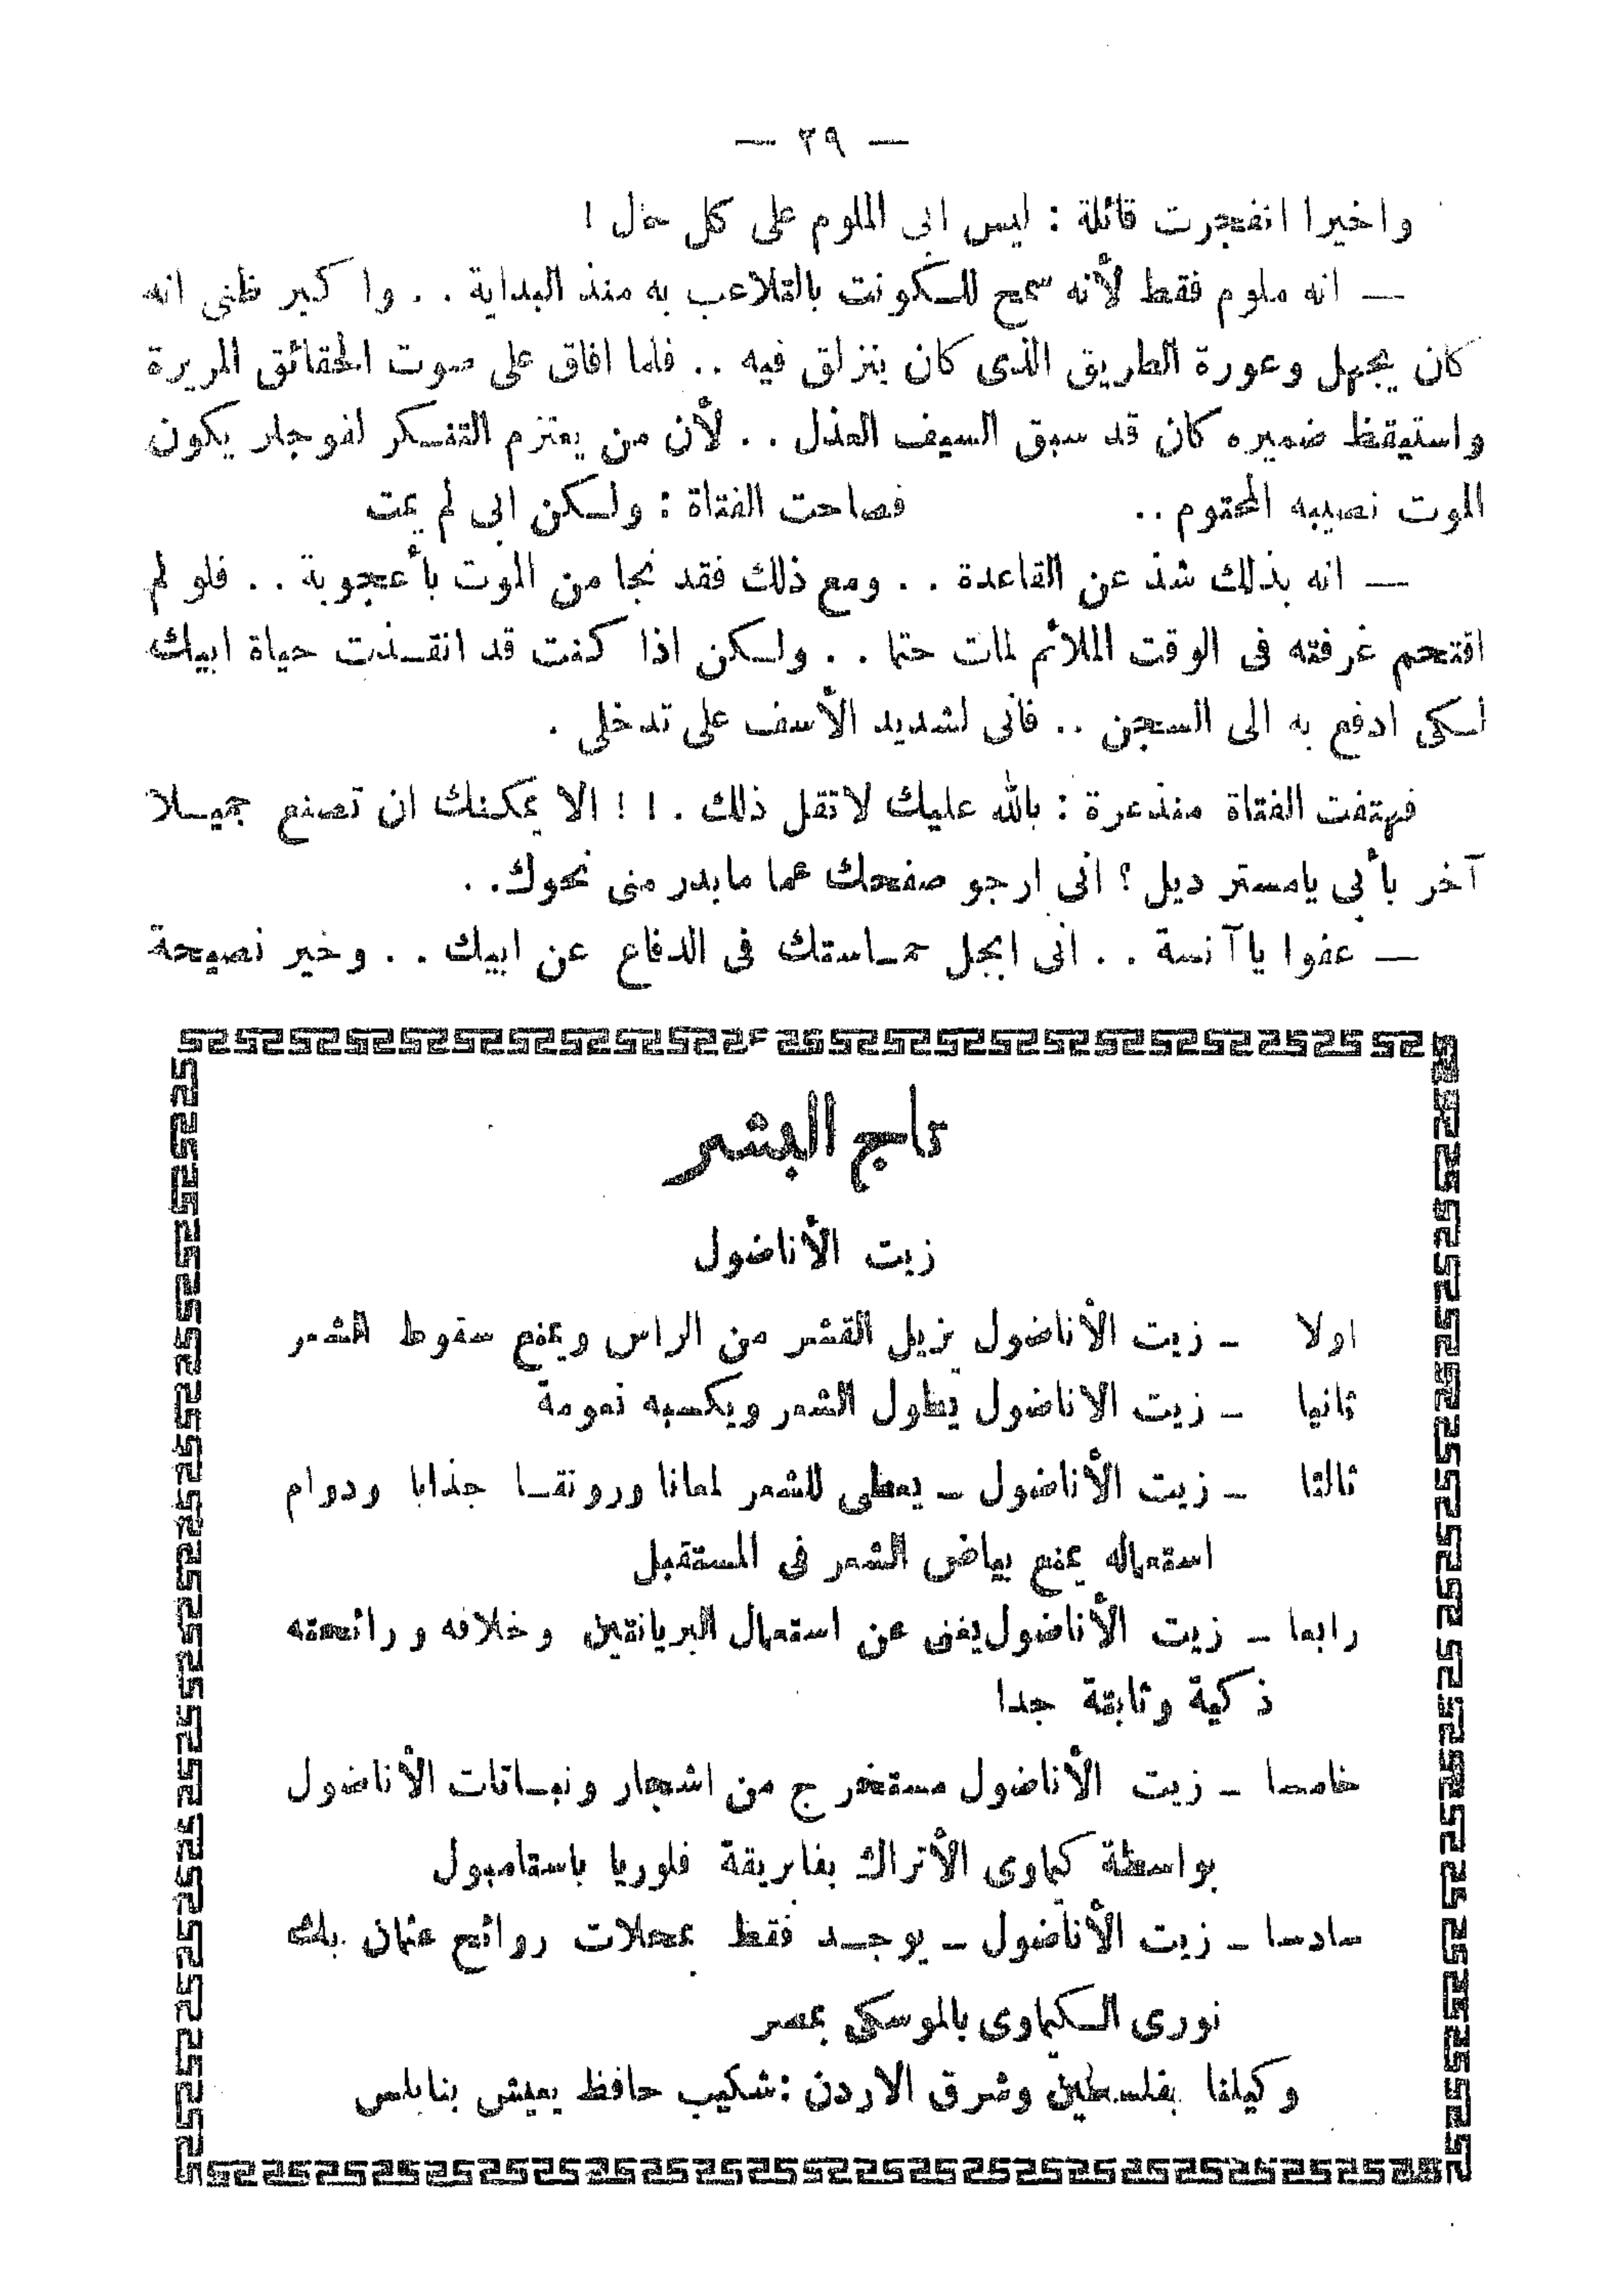 — ٢٩ —
واخيرا انفجرت قائلة : ليس ابى الملوم على كل حال !
— انه ملوم فقط لأنه سمح للسكونت بالتلاعب به منذ البداية . . وا كبر ظنى انه
كان يجهل وعورة الطريق الذى كان ينزلق فيه .. فلما افاق على صوت الحقائق المريرة
واستيقظ ضميره كان قد سبق السيف العذل . . لأن من يعتزم التنكر لفوجلر يكون
الموت نصيبه المحتوم .. فصاحت الفتاة : ولكن ابى لم يمت
— انه بذلك شذ عن القاعدة . . ومع ذلك فقد نجا من الموت بأعجوبة . . فلو لم
اقتحم غرفته فى الوقت الملائم لمات حتما . . ولكن اذا كنت قد انقذت حياة ابيك
لكى ادفع به الى السجن .. فانى لشديد الأسف على تدخلى .
فهتفت الفتاة منذعرة : بالله عليك لا تقل ذلك . ! ! الا يمكنك ان تصنع جميلا
آخر بأبى يامستر ديل ؟ انى ارجو صفحك عما مابدر منى نحوك . .
— عفوا يا آنسة . . انى ابجل حماستك فى الدفاع عن ابيك . . وخير نصيحة
تاج البشر
زيت الأناضول
اولا – زيت الأناضول يزيل القشر من الراس ويمنع سقوط الشعر
ثانيا – زيت الاناضول يطول الشعر ويكسبه نعومة
ثالثا – زيت الأناضول – يعطى للشعر لمعانا ورونقا جذابا ودوام
استعماله يمنع بياض الشعر فى المستقبل
رابعا – زيت الأناضول يغنى عن استعمال البريانتين وخلافه ورائحته
ذكية وثابتة جدا
خامسا – زيت الأناضول مستخرج من اشجار ونباتات الأناضول
بواسطة كيماوى الأتراك بفابريقة فلوريا باستامبول
سادسا – زيت الأناضول – يوجد فقط بمحلات روائح عثمان بك
نورى الكيماوى بالموسكى بمصر
وكيلنا بفلسطين وشرق الاردن : شكيب حافظ يعيش بنابلس